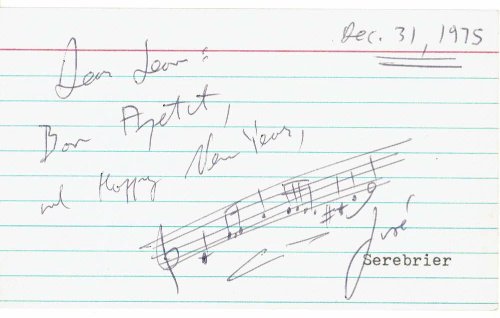 Dec. 31, 1975
Dear
Bon Apetit,
and Happy New Year,
José
Serebrier